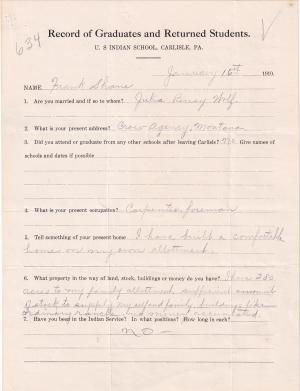 634
Record of Graduates and Returned Students.
U. S INDIAN SCHOOL, CARLISLE, PA.
January 15th 1910.
NAME Frank Shane
1. Are you married and if so to whom? Julia Wolf.
2. What is your present address? Crow Agency, Montana
3. Did you attend or graduate from any other schools after leaving Carlisle? no Give names of
schools and dates if possible
4. What is your present occupation? Carpenter foreman
5. Tell something of your present home I have built a comfortable
home on my own allotment.
6. What property in the way of land, stock, buildings or money do you have? I have 280
acres to my family allotment sufficient amount
of stock to supply myself and family, buildings like
ordinary ranch no money accumulated.
7. Have you been in the Indian Service? In what positions? How long in each?
no —